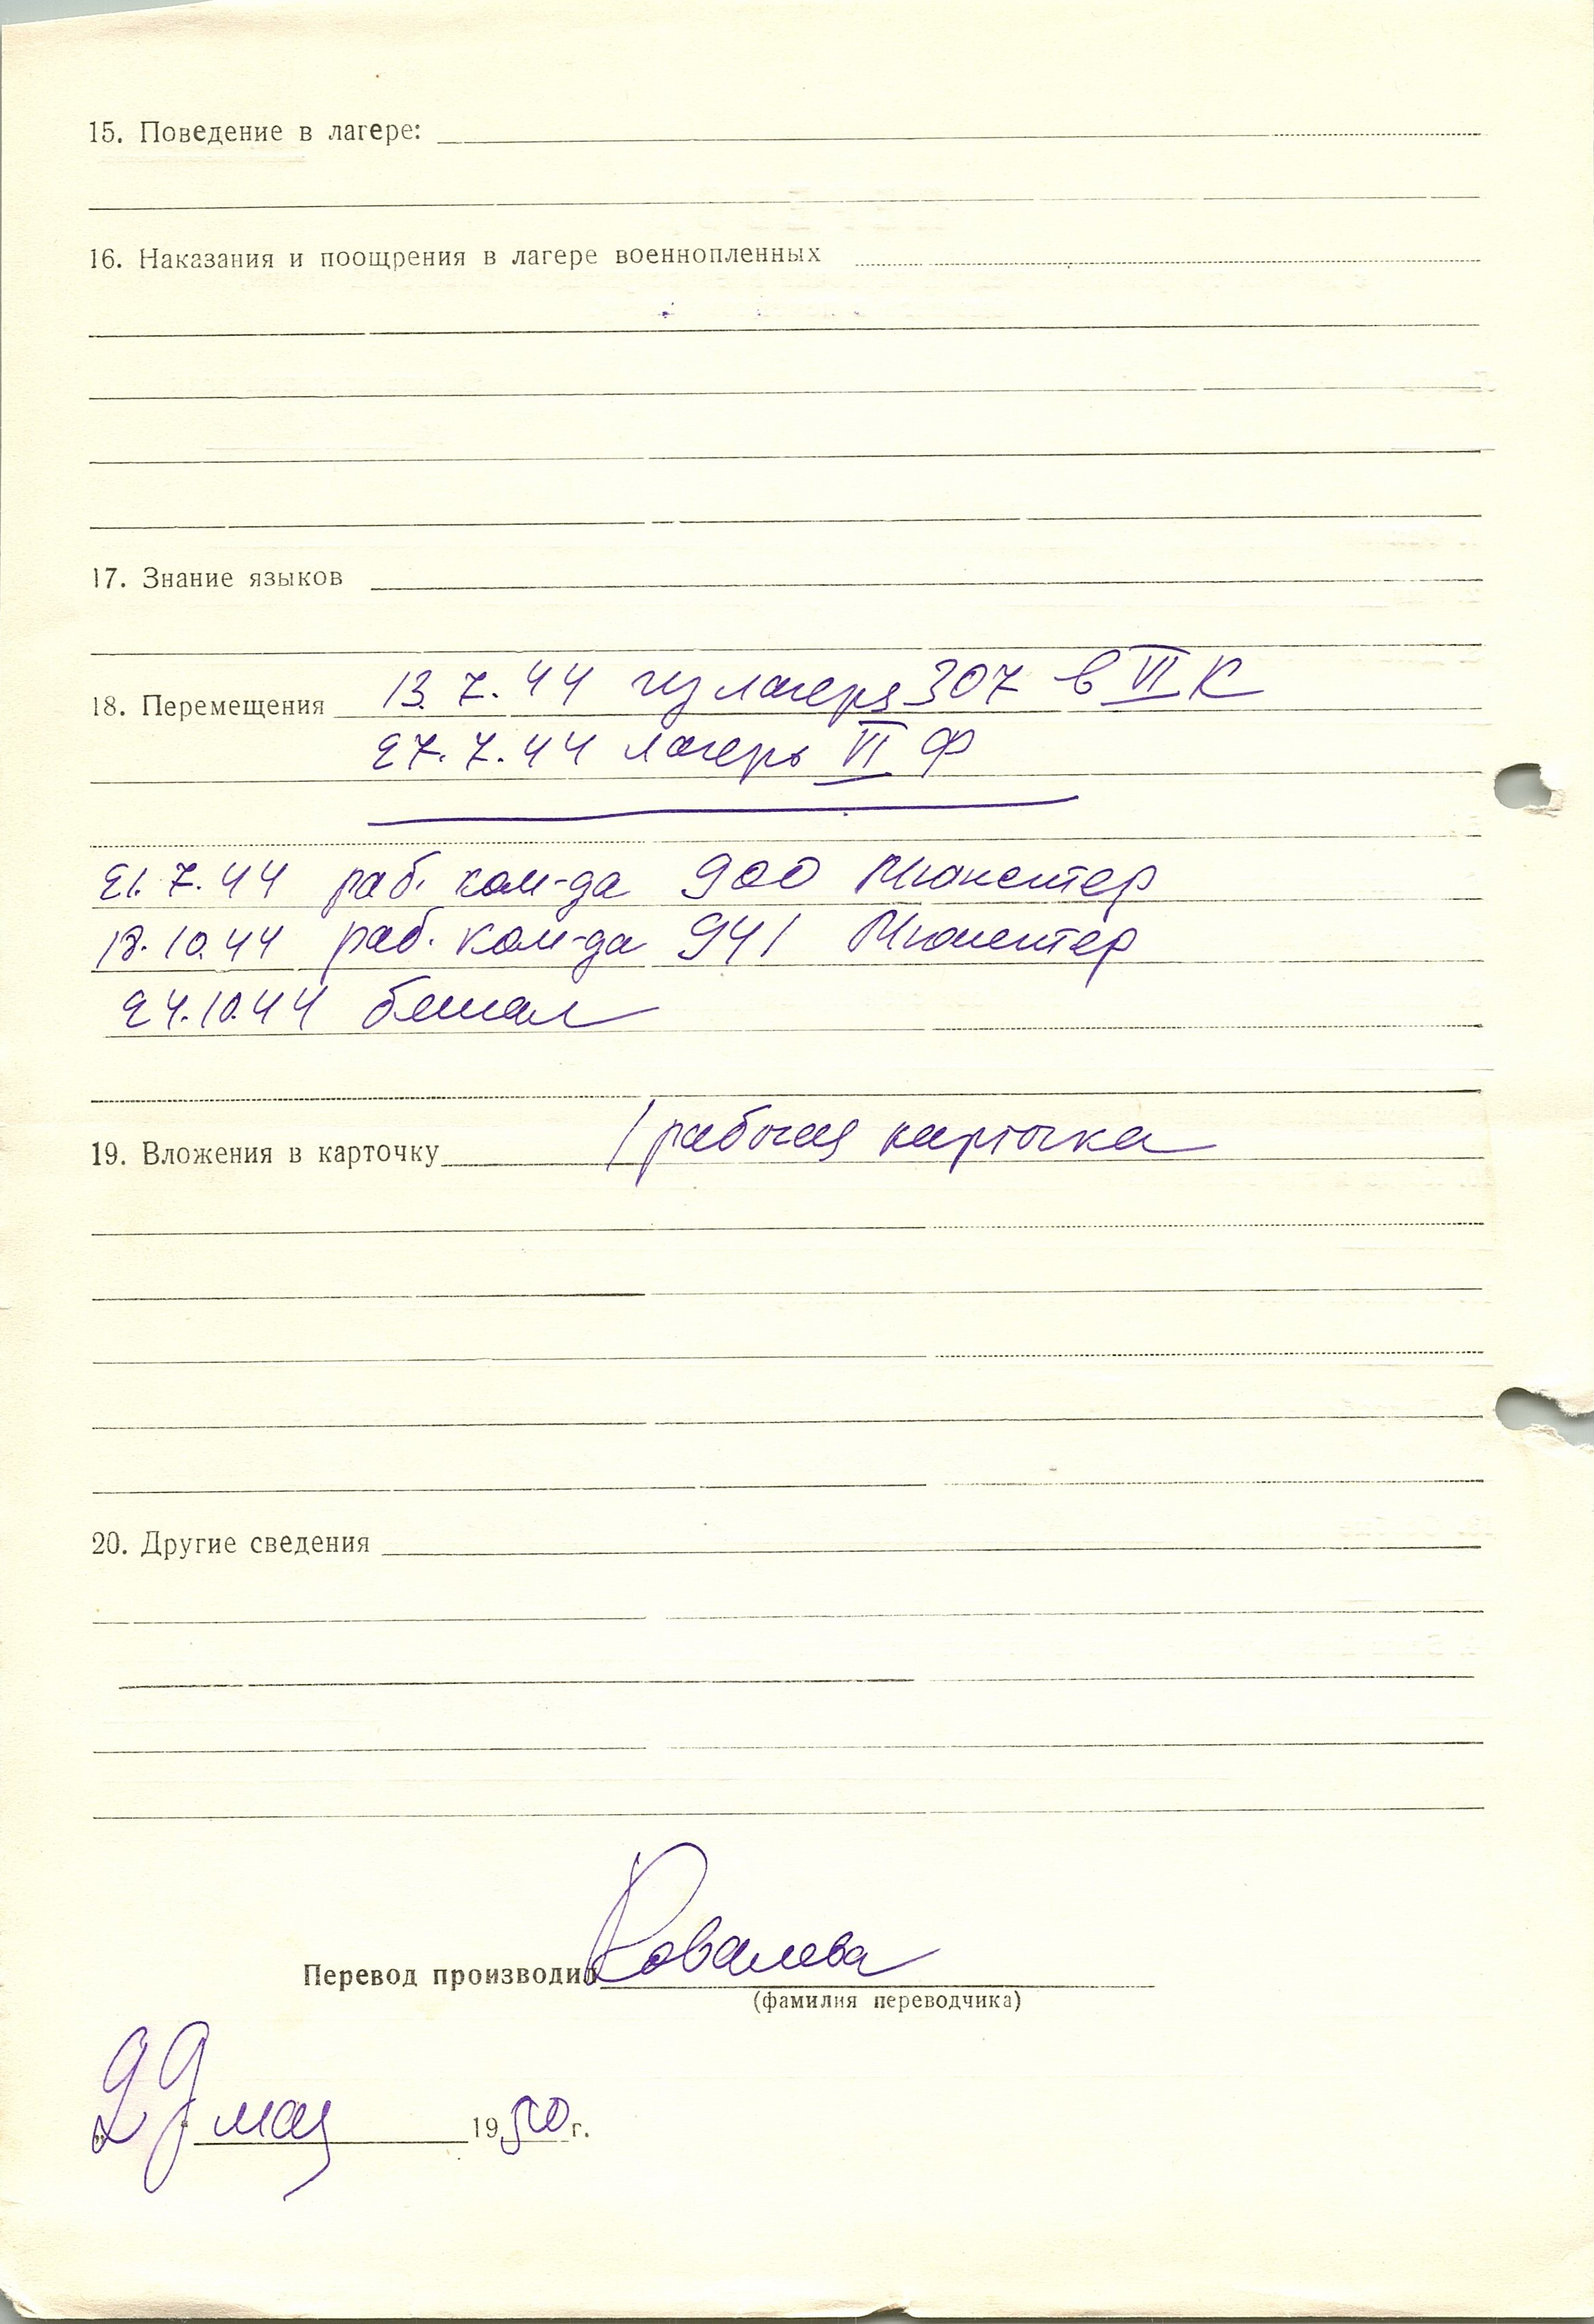 15. Поведение в лагере:
16. Наказания и поощрения в лагере военнопленных
17. Знание языков
18. Перемещения 13.7.44 из лагеря 307 в VI К
27.7.44 лагерь VI Ф
21.7.44 раб. ком-да 900 Мюнстер
18.10.44 раб. ком-да 941 Мюнстер
24.10.44 бежал
19. Вложения в карточку 1 рабочая карточка
20. Другие сведения
Перевод производил Ковалева
(фамилия переводчика)
„29" мая 1950 г.